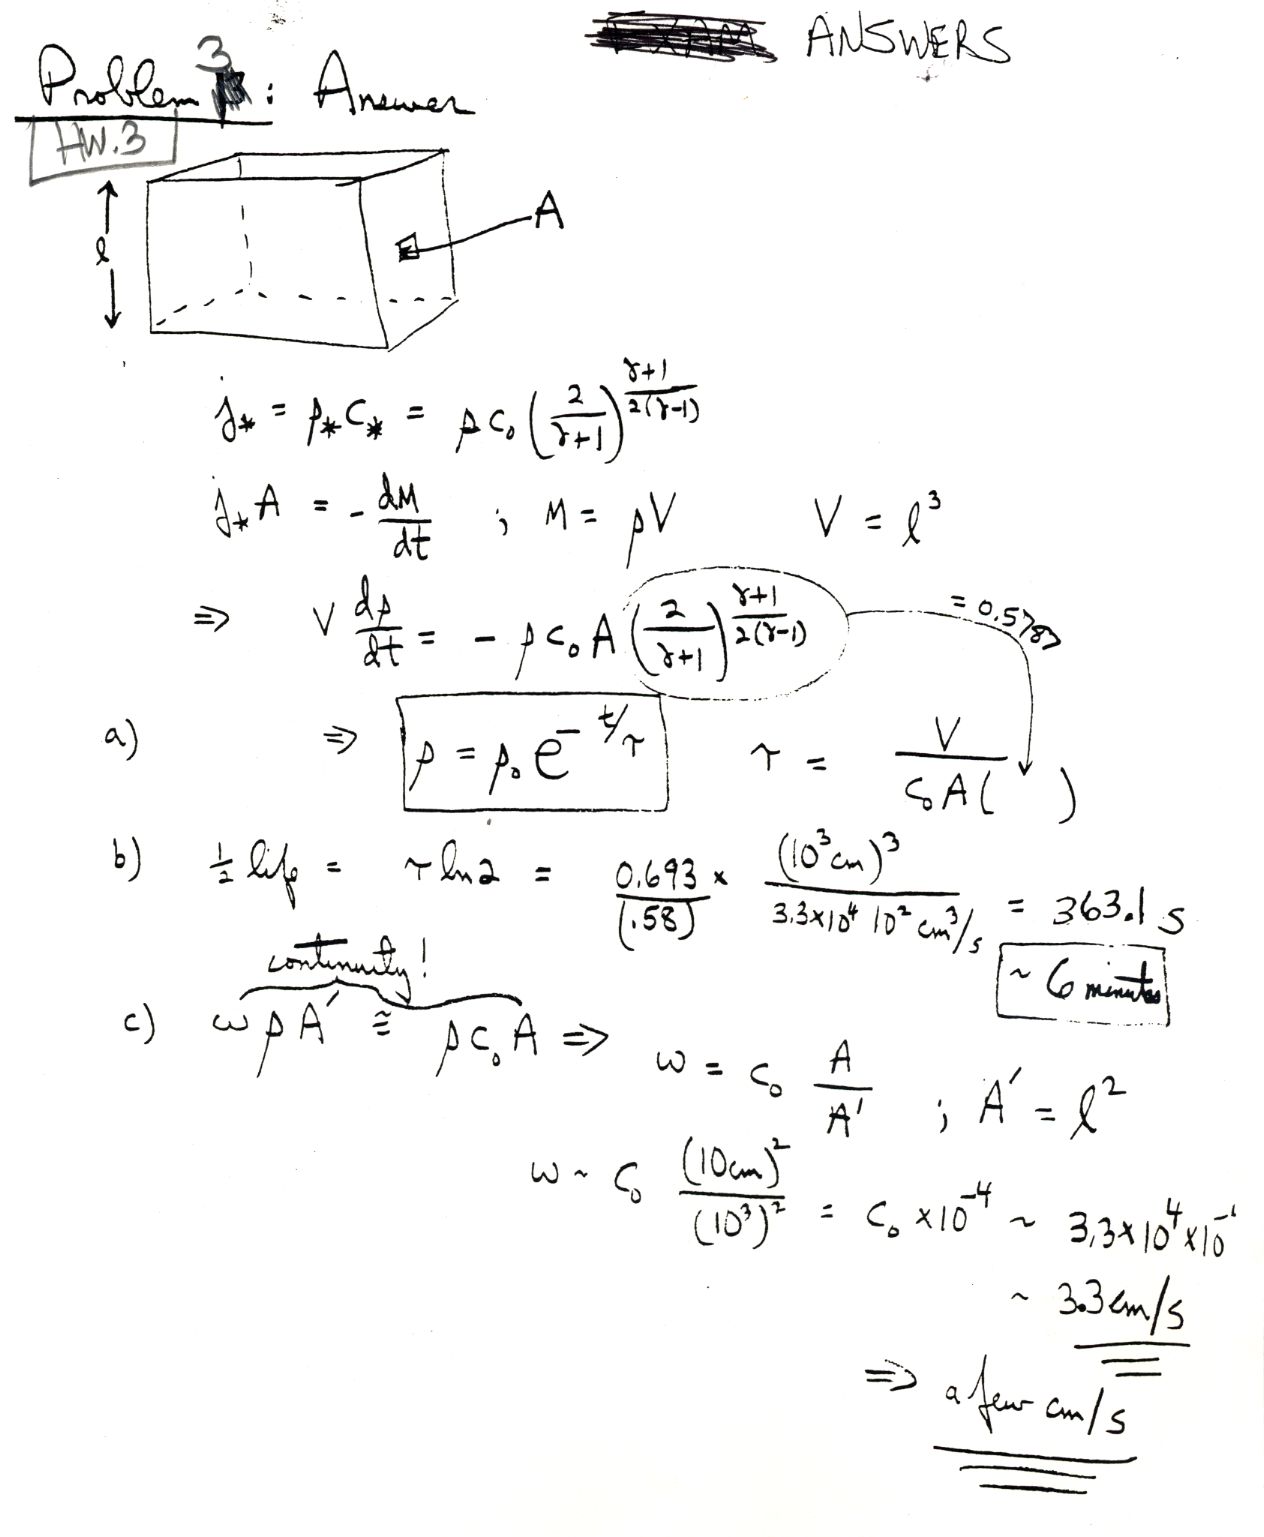 ANSWERS
Problem 3 : Answer
HW.3
l
A
j* = ρ* C* = ρ c₀ (2/(γ+1))^((γ+1)/(2(γ-1)))
j* A = - dM/dt ; M = ρV V = l³
⇒ V dρ/dt = - ρ c₀ A (2/(γ+1))^((γ+1)/(2(γ-1))) = 0.5787
a) ⇒ ρ = ρ₀ e^(-t/τ) τ = V / (c₀ A ( ))
b) ½ life = τ ln 2 = 0.693/(.58) × (10³ cm)³ / (3.3×10⁴ 10² cm³/s) = 363.1 s
~ 6 minutes
continuity!
c) w ρ A′ ≅ ρ c₀ A ⇒ w = c₀ A/A′ ; A′ = l²
w ~ c₀ (10 cm)² / (10³)² = c₀ × 10⁻⁴ ~ 3.3×10⁴×10⁻
~ 3.3 cm/s
⇒ a few cm/s